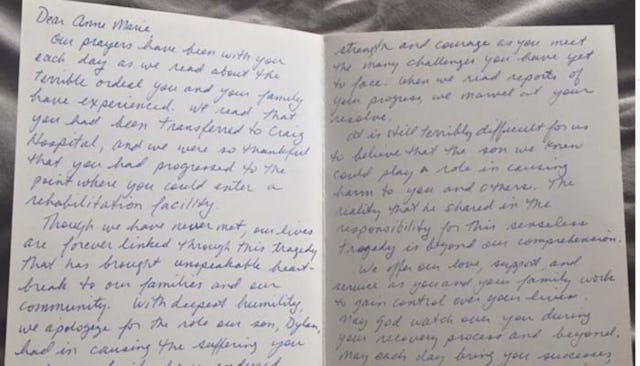 Dear Anne Marie,
Our prayers have been with you
each day as we read about the
terrible ordeal you and your family
have experienced. We read that
you had been transferred to Craig
Hospital, and we were so thankful
that you had progressed to the
point where you could enter a
rehabilitation facility.
Though we have never met, our lives
are forever linked through this tragedy
that has brought unspeakable heart-
break to our families and our
community. With deepest humility,
we apologize for the role our son, Dylan,
had in causing the suffering you
have endured
strength and courage as you meet
the many challenges you have yet
to face. When we read reports of
your progress, we marvel at your
resolve.
It is still terribly difficult for us
to believe that the son we knew
could play a role in causing
harm to you and others. The
reality that he shared in the
responsibility for this senseless
tragedy is beyond our comprehension.
We offer our love, support and
service as you and your family work
to gain control over your lives.
May God watch over you during
your recovery process and beyond.
May each day bring you successes